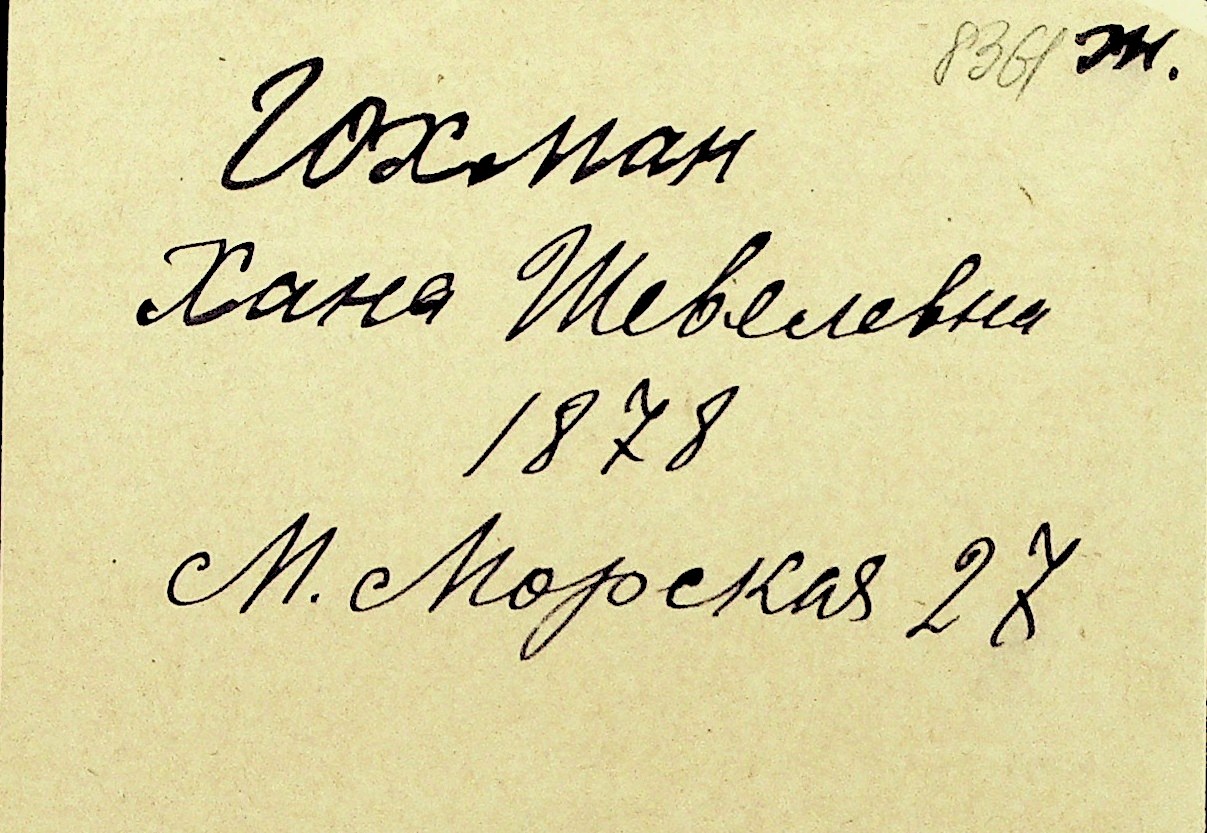 8361 ж.
Гохман
Хана Шевелевна
1878
М. Морская 27